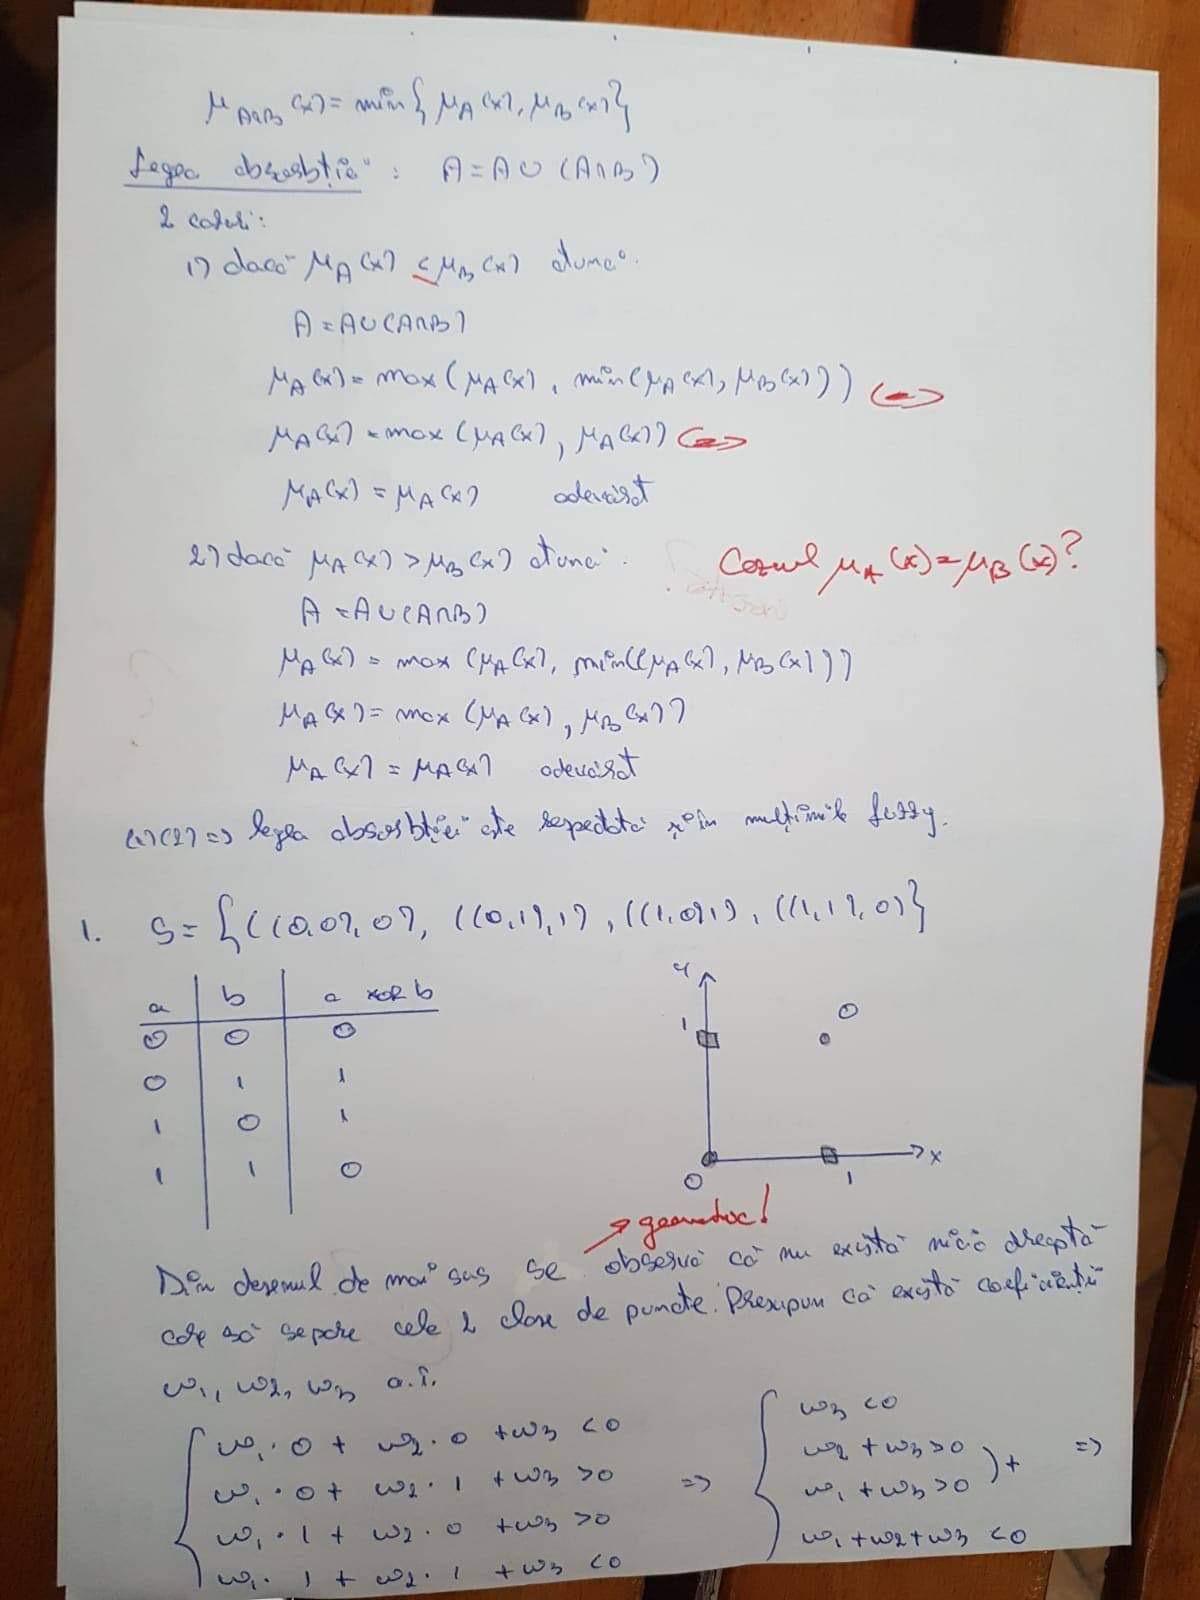 μ_{A∩B}(x) = min{μ_A(x), μ_B(x)}
Legea absorbției: A = A∪(A∩B)
2 cazuri:
1) dacă μ_A(x) ≤ μ_B(x) atunci
A = A∪(A∩B)
μ_A(x) = max(μ_A(x), min(μ_A(x), μ_B(x))) <=>
μ_A(x) = max(μ_A(x), μ_A(x)) <=>
μ_A(x) = μ_A(x) adevărat
2) dacă μ_A(x) > μ_B(x) atunci Cazul μ_A(x) = μ_B(x)?
A = A∪(A∩B)
μ_A(x) = max(μ_A(x), min((μ_A(x), μ_B(x)))
μ_A(x) = max(μ_A(x), μ_B(x))
μ_A(x) = μ_A(x) adevărat
(1)(2) => legea absorbției este respectată și în mulțimile fuzzy.
1. S = {((0,0), 0), ((0,1), 1), ((1,0), 1), ((1,1), 0)}
a b a XOR b
0 0 0
0 1 1
1 0 1
1 1 0
y
1
0
0
1
x
geometric!
Din desenul de mai sus se observă că nu există nicio dreaptă
care să separe cele 2 clase de puncte. Presupun că există coeficienții
w1, w2, w3 a.î.
w1 · 0 + w2 · 0 + w3 < 0
w1 · 0 + w2 · 1 + w3 > 0 =>
w1 · 1 + w2 · 0 + w3 > 0
w1 · 1 + w2 · 1 + w3 < 0
w3 < 0
w2 + w3 > 0 =>
w1 + w3 > 0 )+
w1 + w2 + w3 < 0